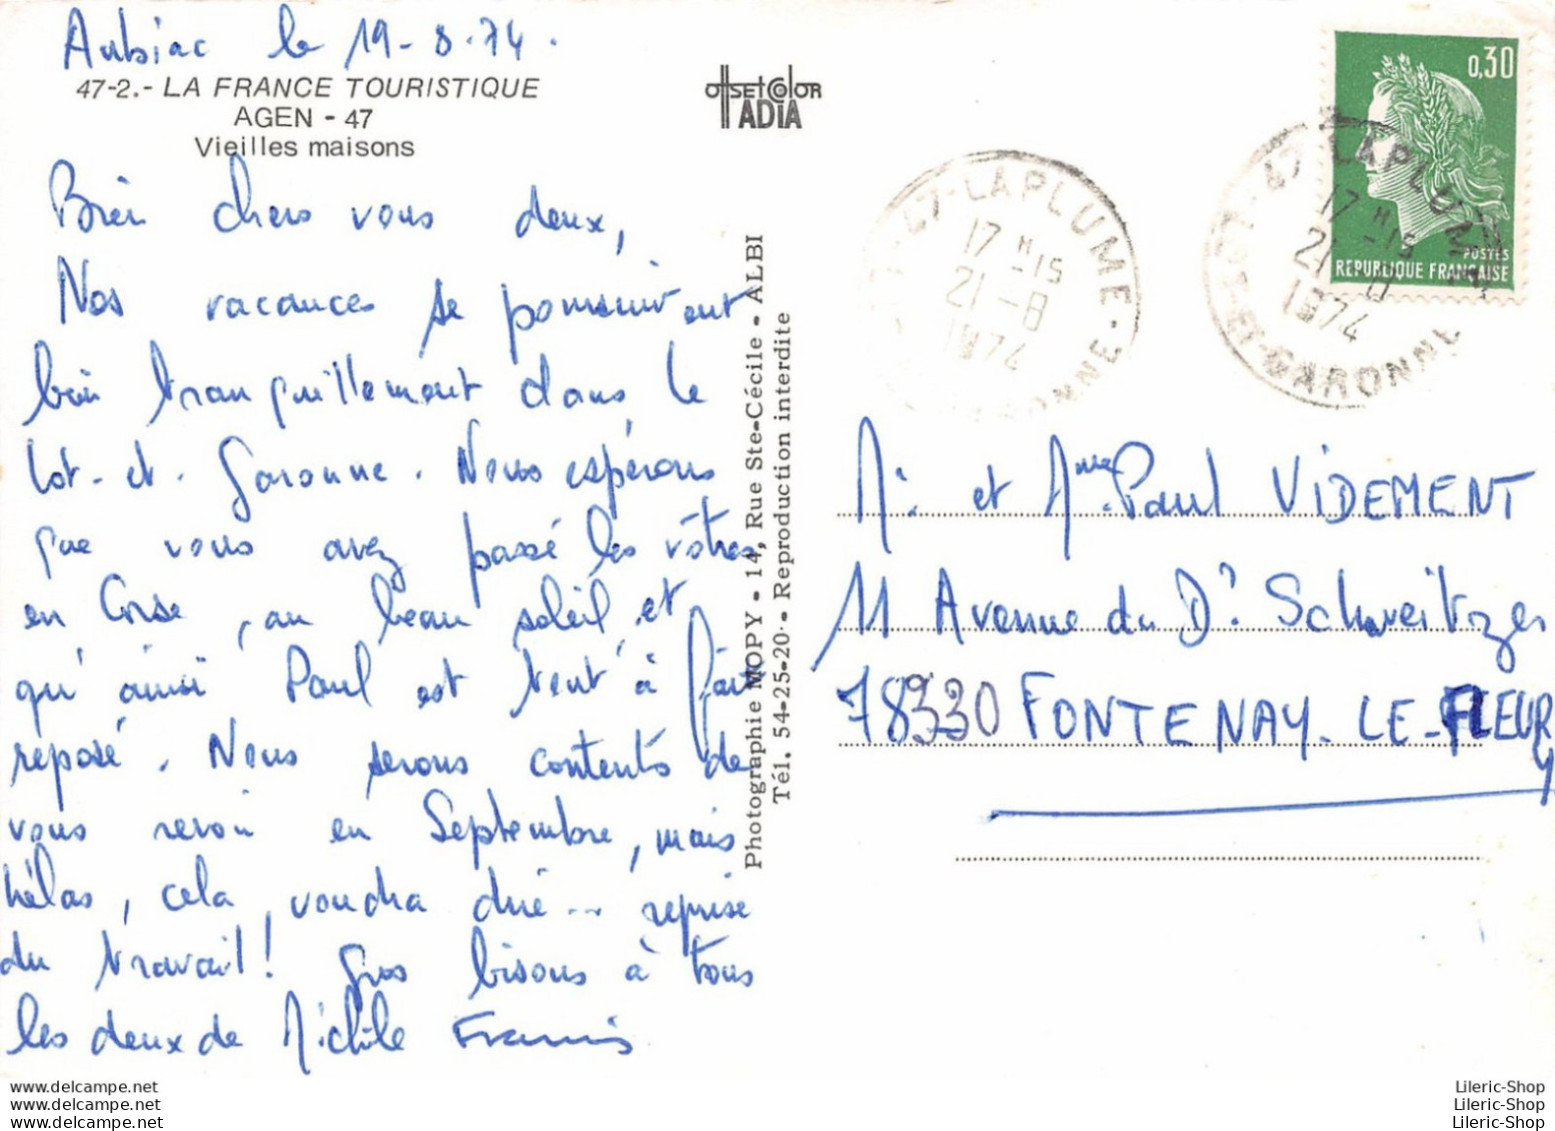 Aubiac le 19-8-74.
47-2.- LA FRANCE TOURISTIQUE
AGEN - 47
Vieilles maisons
Bien chers vous deux,
Nos vacances se poursuivent
bien tranquillement dans le
Lot-et-Garonne. Nous espérons
que vous avez passé les vôtres
en Corse, au beau soleil, et
qu'ainsi Paul est tout à fait
reposé. Nous serons contents de
vous revoir en Septembre, mais
hélas, cela voudra dire... reprise
du travail! Gros bisous à tous
les deux de Michèle Francis
OFFSET COLOR
TADIA
Photographie MOPY - 14, Rue Ste-Cécile - ALBI
Tél. 54-25-20 - Reproduction interdite
47-LAPLUME
17 H -15
21 -8
1974
GARONNE
0,30
POSTES
REPUBLIQUE FRANÇAISE
47 LAPLUME
17 H -15
21 -8
1974
LOT-ET-GARONNE
M. et Mme Paul VIDEMENT
11 Avenue du Dr Schweitzer
78330 FONTENAY-LE-FLEURY
www.delcampe.net
www.delcampe.net
www.delcampe.net
Lileric-Shop
Lileric-Shop
Lileric-Shop